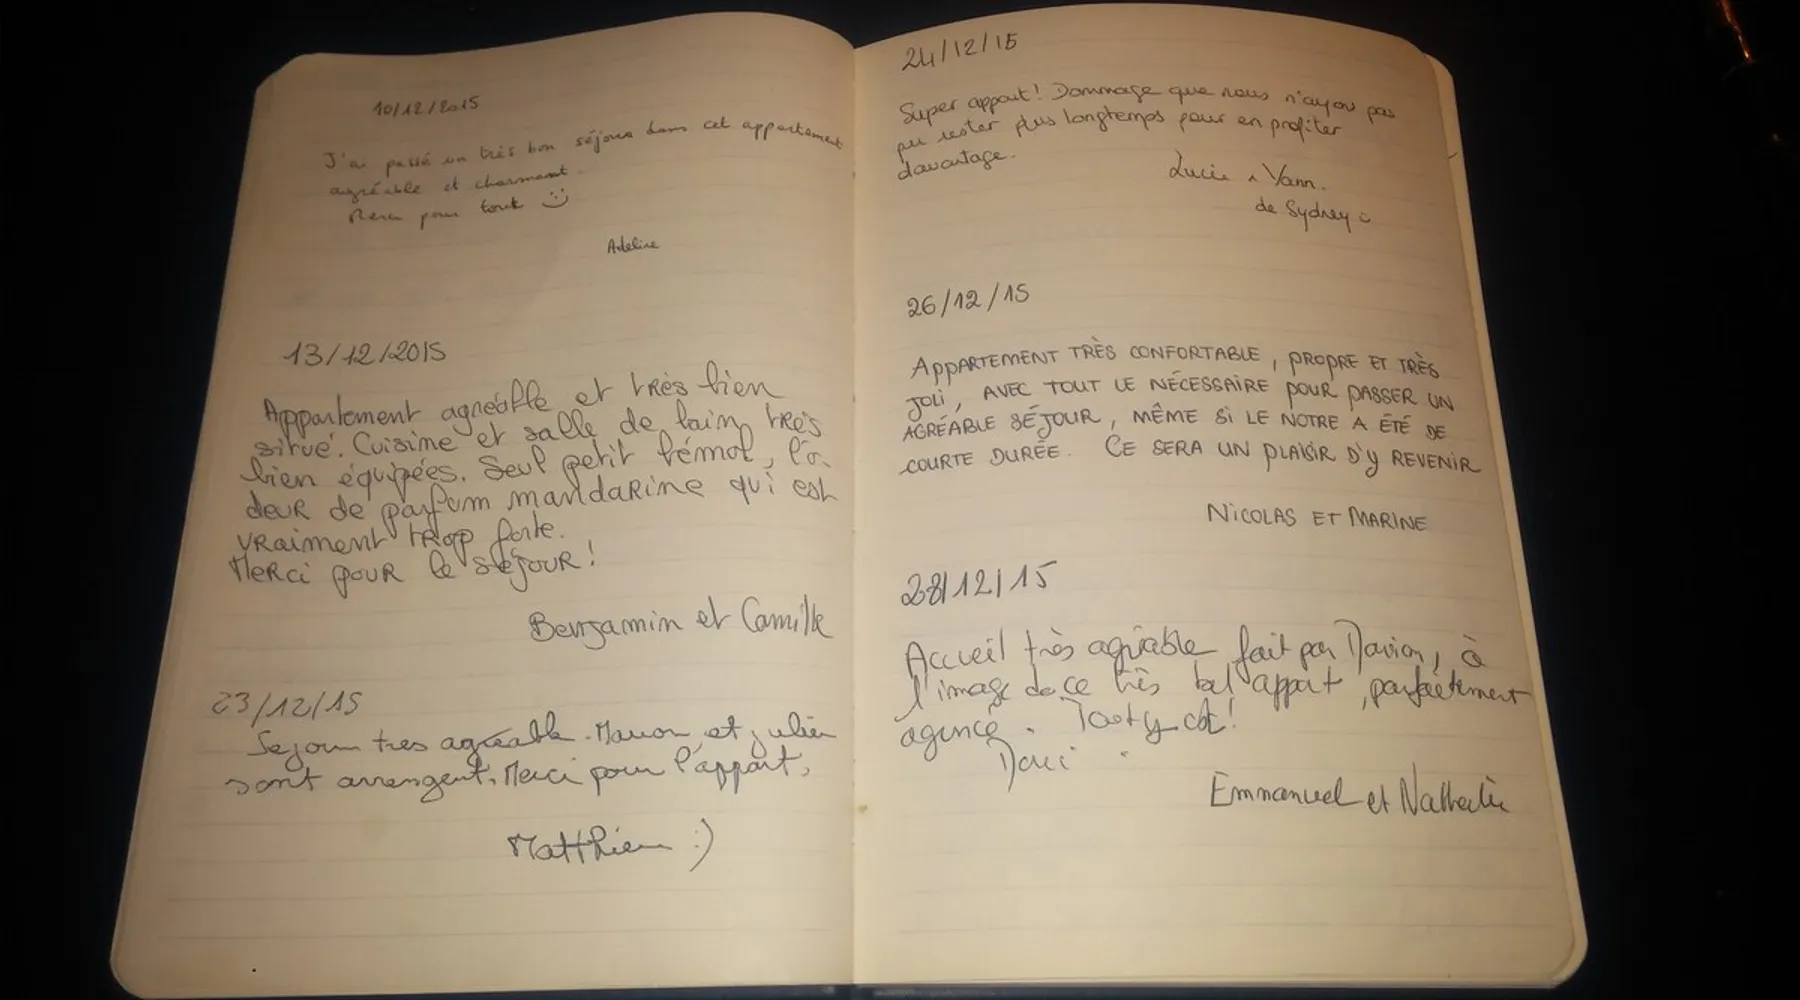 10/12/2015
J'ai passé un très bon séjour dans cet appartement
agréable et charmant.
Merci pour tout :)
Adeline
13/12/2015
Appartement agréable et très bien
situé. Cuisine et salle de bain très
bien équipées. Seul petit bémol, l'o-
deur de parfum mandarine qui est
vraiment trop forte.
Merci pour le séjour !
Benjamin et Camille
23/12/15
Sejour tres agréable. Manon et julien
sont arrengent. Merci pour l'appart,
Matthieu :)
24/12/15
Super appart! Dommage que nous n'ayons pas
pu rester plus longtemps pour en profiter
davantage.
Lucie & Yann.
de Sydney
26/12/15
APPARTEMENT TRÈS CONFORTABLE, PROPRE ET TRÈS
JOLI, AVEC TOUT LE NÉCESSAIRE POUR PASSER UN
AGRÉABLE SÉJOUR, MÊME SI LE NOTRE A ÉTÉ DE
COURTE DURÉE. CE SERA UN PLAISIR D'Y REVENIR
NICOLAS ET MARINE
28/12/15
Accueil très agréable fait par Manon, à
l'image de ce très bel appart, parfaitement
agencé. Tout y est!
Merci.
Emmanuel et Nathalie